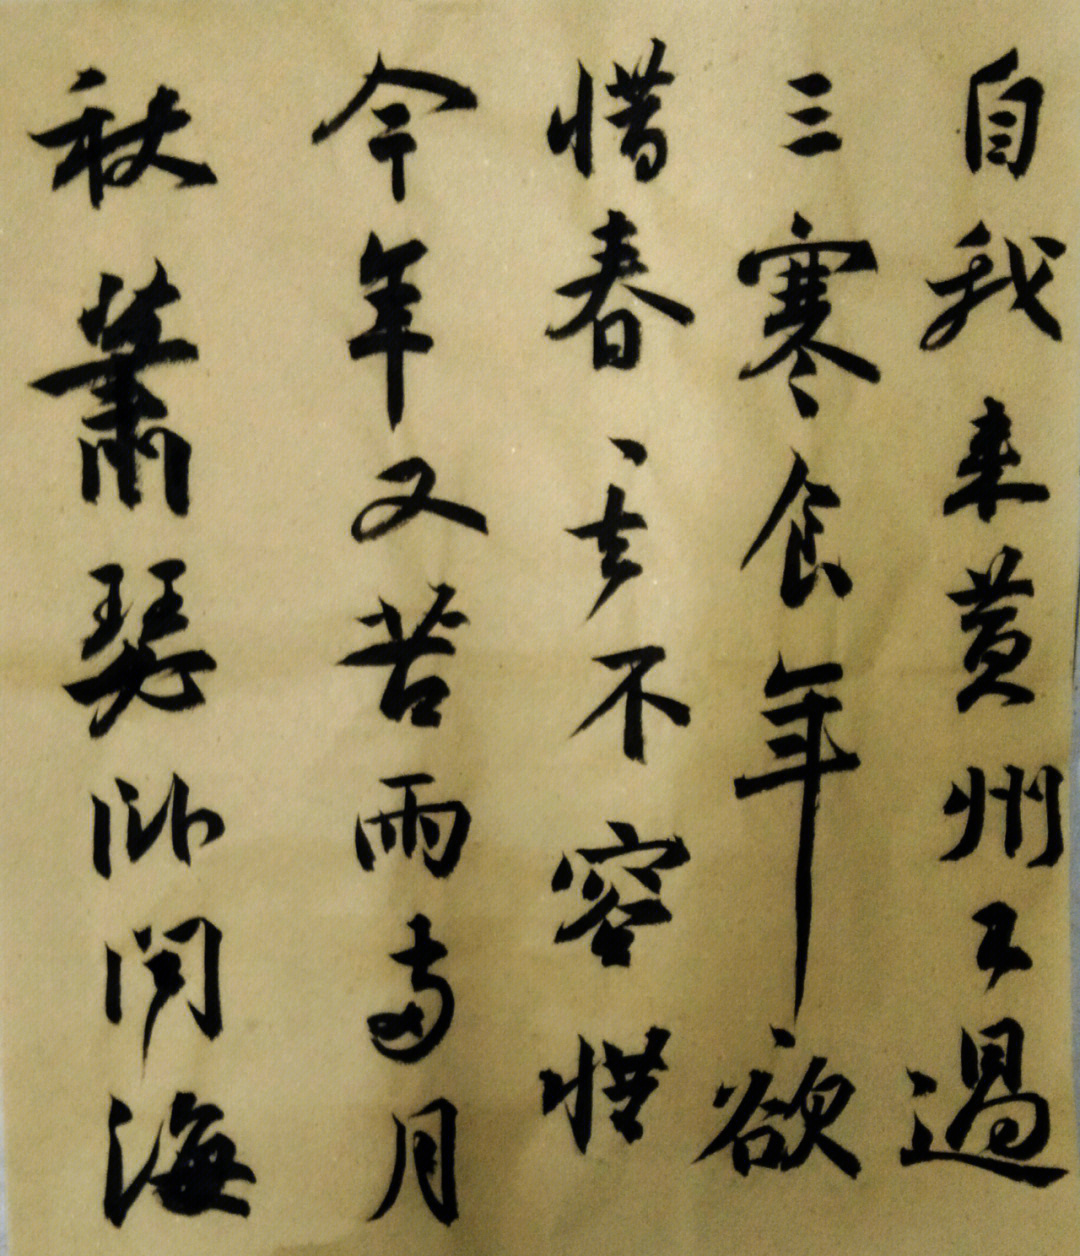 自我来黄州已過
三寒食年丶欲
惜春丶去不容惜
今年又苦雨兩月
秋蕭瑟卧聞海